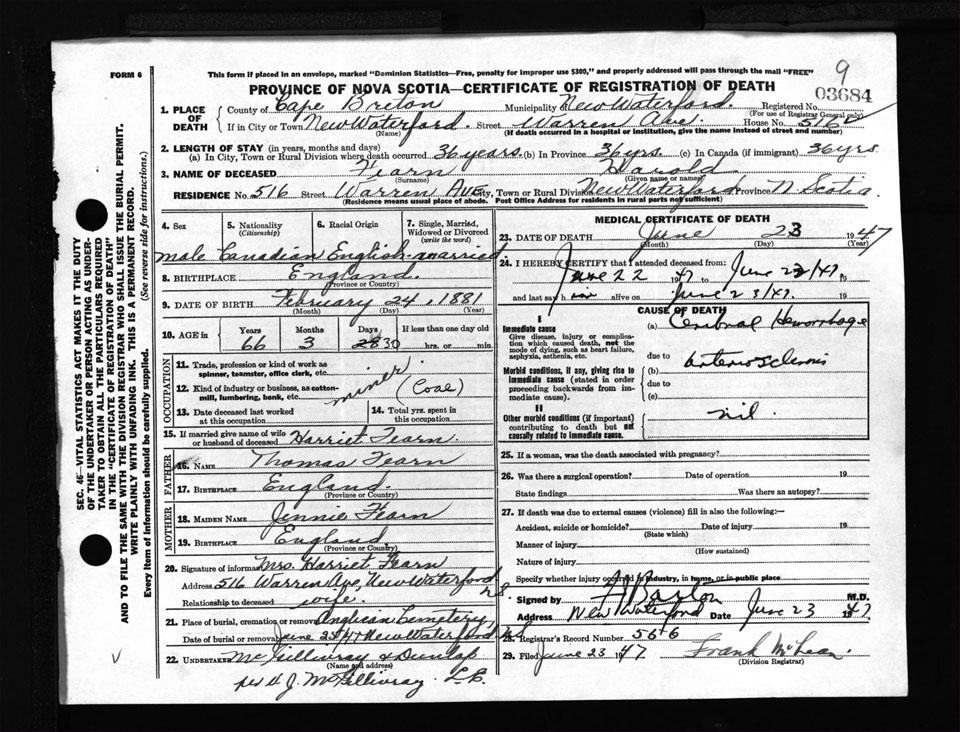 FORM 6
This form if placed in an envelope, marked "Dominion Statistics—Free, penalty for improper use $300," and properly addressed will pass through the mail "FREE"
9
PROVINCE OF NOVA SCOTIA—CERTIFICATE OF REGISTRATION OF DEATH
03684
1. PLACE OF DEATH
County of Cape Breton Municipality of New Waterford. Registered No.
(For use of Registrar General only)
If in City or Town New Waterford. Street Warren Ave. House No. 516
(Name) (If death occurred in a hospital or institution, give the name instead of street and number)
2. LENGTH OF STAY (in years, months and days)
(a) In City, Town or Rural Division where death occurred 36 years. (b) In Province 36 yrs. (c) In Canada (if immigrant) 36 yrs.
3. NAME OF DECEASED Fearn Harold
(Surname) (Given name or names)
RESIDENCE No. 516 Street Warren Ave City, Town or Rural Division New Waterford Province N Scotia
(Residence means usual place of abode. Post Office Address for residents in rural parts not sufficient)
4. Sex
5. Nationality (Citizenship)
6. Racial Origin
7. Single, Married, Widowed or Divorced (write the word)
male Canadian English married.
8. BIRTHPLACE England.
(Province or Country)
9. DATE OF BIRTH February 24, 1881
(Month) (Day) (Year)
10. AGE in Years Months Days If less than one day old
66 3 28 30 hrs. or min.
OCCUPATION
11. Trade, profession or kind of work as spinner, teamster, office clerk, etc.
miner
12. Kind of industry or business, as cotton-mill, lumbering, bank, etc.
(Coal)
13. Date deceased last worked at this occupation
14. Total yrs. spent in this occupation
15. If married give name of wife or husband of deceased Harriet Fearn.
FATHER
16. NAME Thomas Fearn
17. BIRTHPLACE England.
(Province or Country)
MOTHER
18. MAIDEN NAME Jennie Fearn
19. BIRTHPLACE England
(Province or Country)
20. Signature of informant Mrs. Harriet Fearn
Address 516 Warren Ave, New Waterford N.S.
Relationship to deceased wife.
21. Place of burial, cremation or removal Anglican Cemetery,
Date of burial or removal June 25th/47 New Waterford
22. UNDERTAKER McGillivray & Dunlap
(Name and address)
per H J. McGillivray L.E.
MEDICAL CERTIFICATE OF DEATH
23. DATE OF DEATH June 23 1947
(Month) (Day) (Year)
24. I HEREBY CERTIFY that I attended deceased from:
June 22 47 to June 23/47 19
and last saw him alive on June 23/47. 19
CAUSE OF DEATH
I
Immediate cause
Give disease, injury or complication which caused death, not the mode of dying, such as heart failure, asphyxia, asthenia, etc.
(a) Cerebral Hemorrhage
due to
Morbid conditions, if any, giving rise to immediate cause (stated in order proceeding backwards from immediate cause).
(b) arteriosclerosis
due to
(c)
II
Other morbid conditions (if important) contributing to death but not causally related to immediate cause.
nil.
25. If a woman, was the death associated with pregnancy?
26. Was there a surgical operation? Date of operation 19
State findings Was there an autopsy?
27. If death was due to external causes (violence) fill in also the following:—
Accident, suicide or homicide? Date of injury 19
(State which)
Manner of injury
(How sustained)
Nature of injury
Specify whether injury occurred in industry, in home, or in public place
Signed by Barton M.D.
Address New Waterford Date June 23 1947
28. Registrar's Record Number 566
29. Filed June 23 1947 Frank McLean.
(Division Registrar)
SEC. 46—VITAL STATISTICS ACT MAKES IT THE DUTY
OF THE UNDERTAKER OR PERSON ACTING AS UNDERTAKER TO OBTAIN ALL THE PARTICULARS REQUIRED
IN THE "CERTIFICATE OF REGISTRATION OF DEATH"
AND TO FILE THE SAME WITH THE DIVISION REGISTRAR WHO SHALL ISSUE THE BURIAL PERMIT.
WRITE PLAINLY WITH UNFADING INK. THIS IS A PERMANENT RECORD.
Every item of information should be carefully supplied. (See reverse side for instructions.)